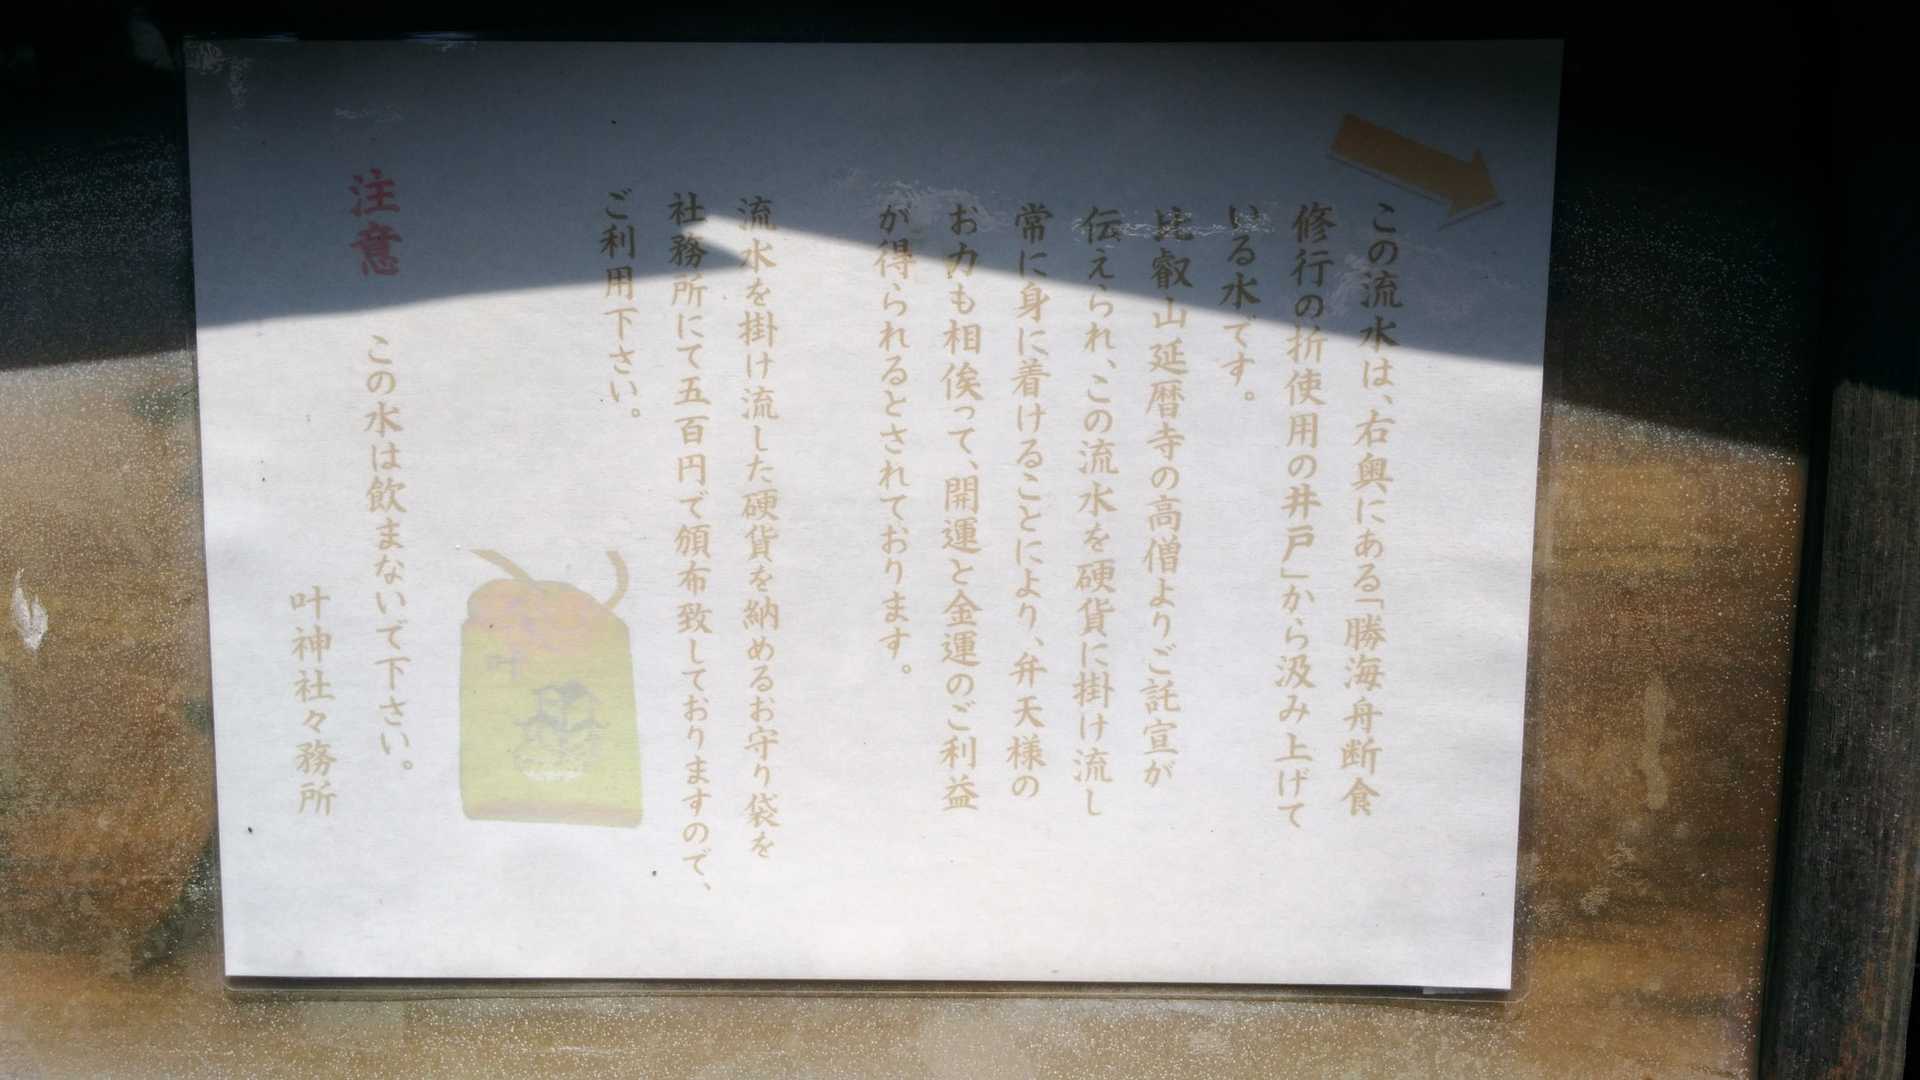 この流水は、右奥にある「勝海舟断食
修行の折使用の井戸」から汲み上げて
いる水です。
比叡山延暦寺の高僧よりご託宣が
伝えられ、この流水を硬貨に掛け流し
常に身に着けることにより、弁天様の
お力も相俟って、開運と金運のご利益
が得られるとされております。
流水を掛け流した硬貨を納めるお守り袋を
社務所にて五百円で頒布致しておりますので、
ご利用下さい。
叶
注意 この水は飲まないで下さい。
叶神社々務所